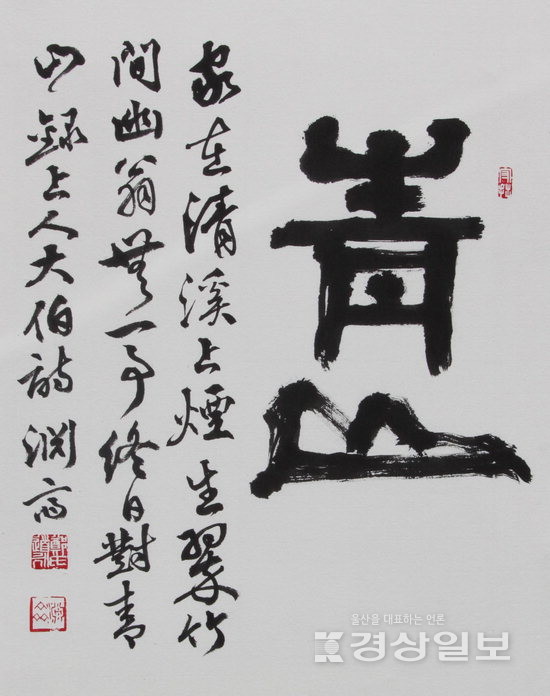 靑山
家在清溪上煙生翠竹
間幽翁無一事終日對青
山 錄上人大伯詩 渊
울산을 대표하는 언론
경상일보